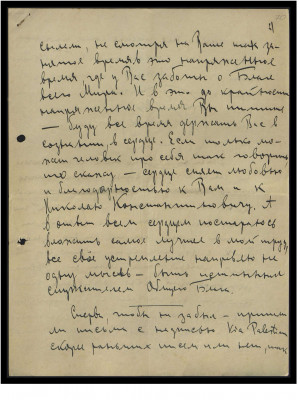 4
сылем, не смотря на Ваше так за-
нятое время, в это напряженное
время, где у Вас заботы о Благе
всего Мира. И в это до крайности
напряженное время Вы пишите
— буду все время держать Вас в
сознании, в сердце. Если только мо-
жет человек про себя так говорить
то скажу — сердце сияет любовью
и благодарностью к Вам и к
Николаю Константиновичу. А
в ответ всем сердцем постараюсь
вложить самое лучшее в мой труд,
все своё устремление направлю на
одну мысль — быть истинным
служителем Общего Блага.
Сперва, чтобы не забыл — пришли
ли письма с надписью Via Palestin
скорее раньших писем или нет,